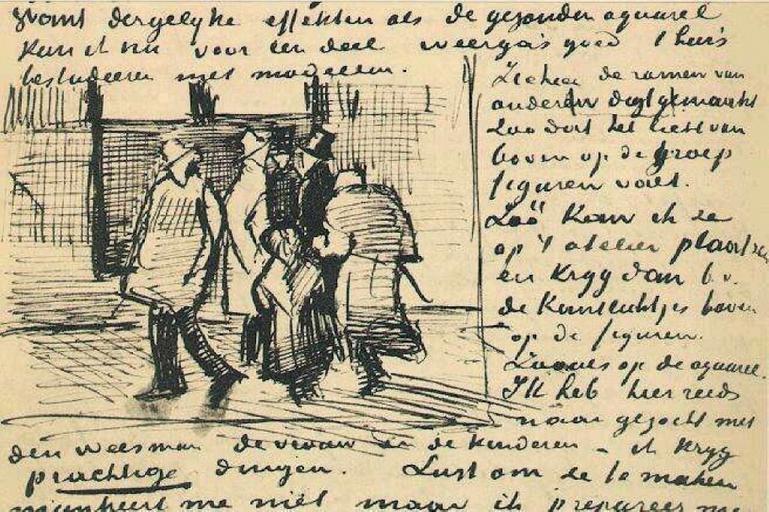 want dergelyke effekten als de gezonden aquarel
kan ik nu voor een deel weerga's goed t'huis
bestudeeren met modellen.
de ramen van
onderen digt gemaakt
Zoo dat het licht van
boven op de groep
figuren valt.
Zoo kan ik ze
op 't atelier plaatsen
en kryg dan b.v.
de kantlichtjes boven
op de figuren.
Zooals op de aquarel.
Ik heb hier reeds
naar gezocht met
den weesman de vrouw en de kinderen – ik kryg
prachtige dingen. Lust om ze te maken
mankeert me niet maar ik prepareer me